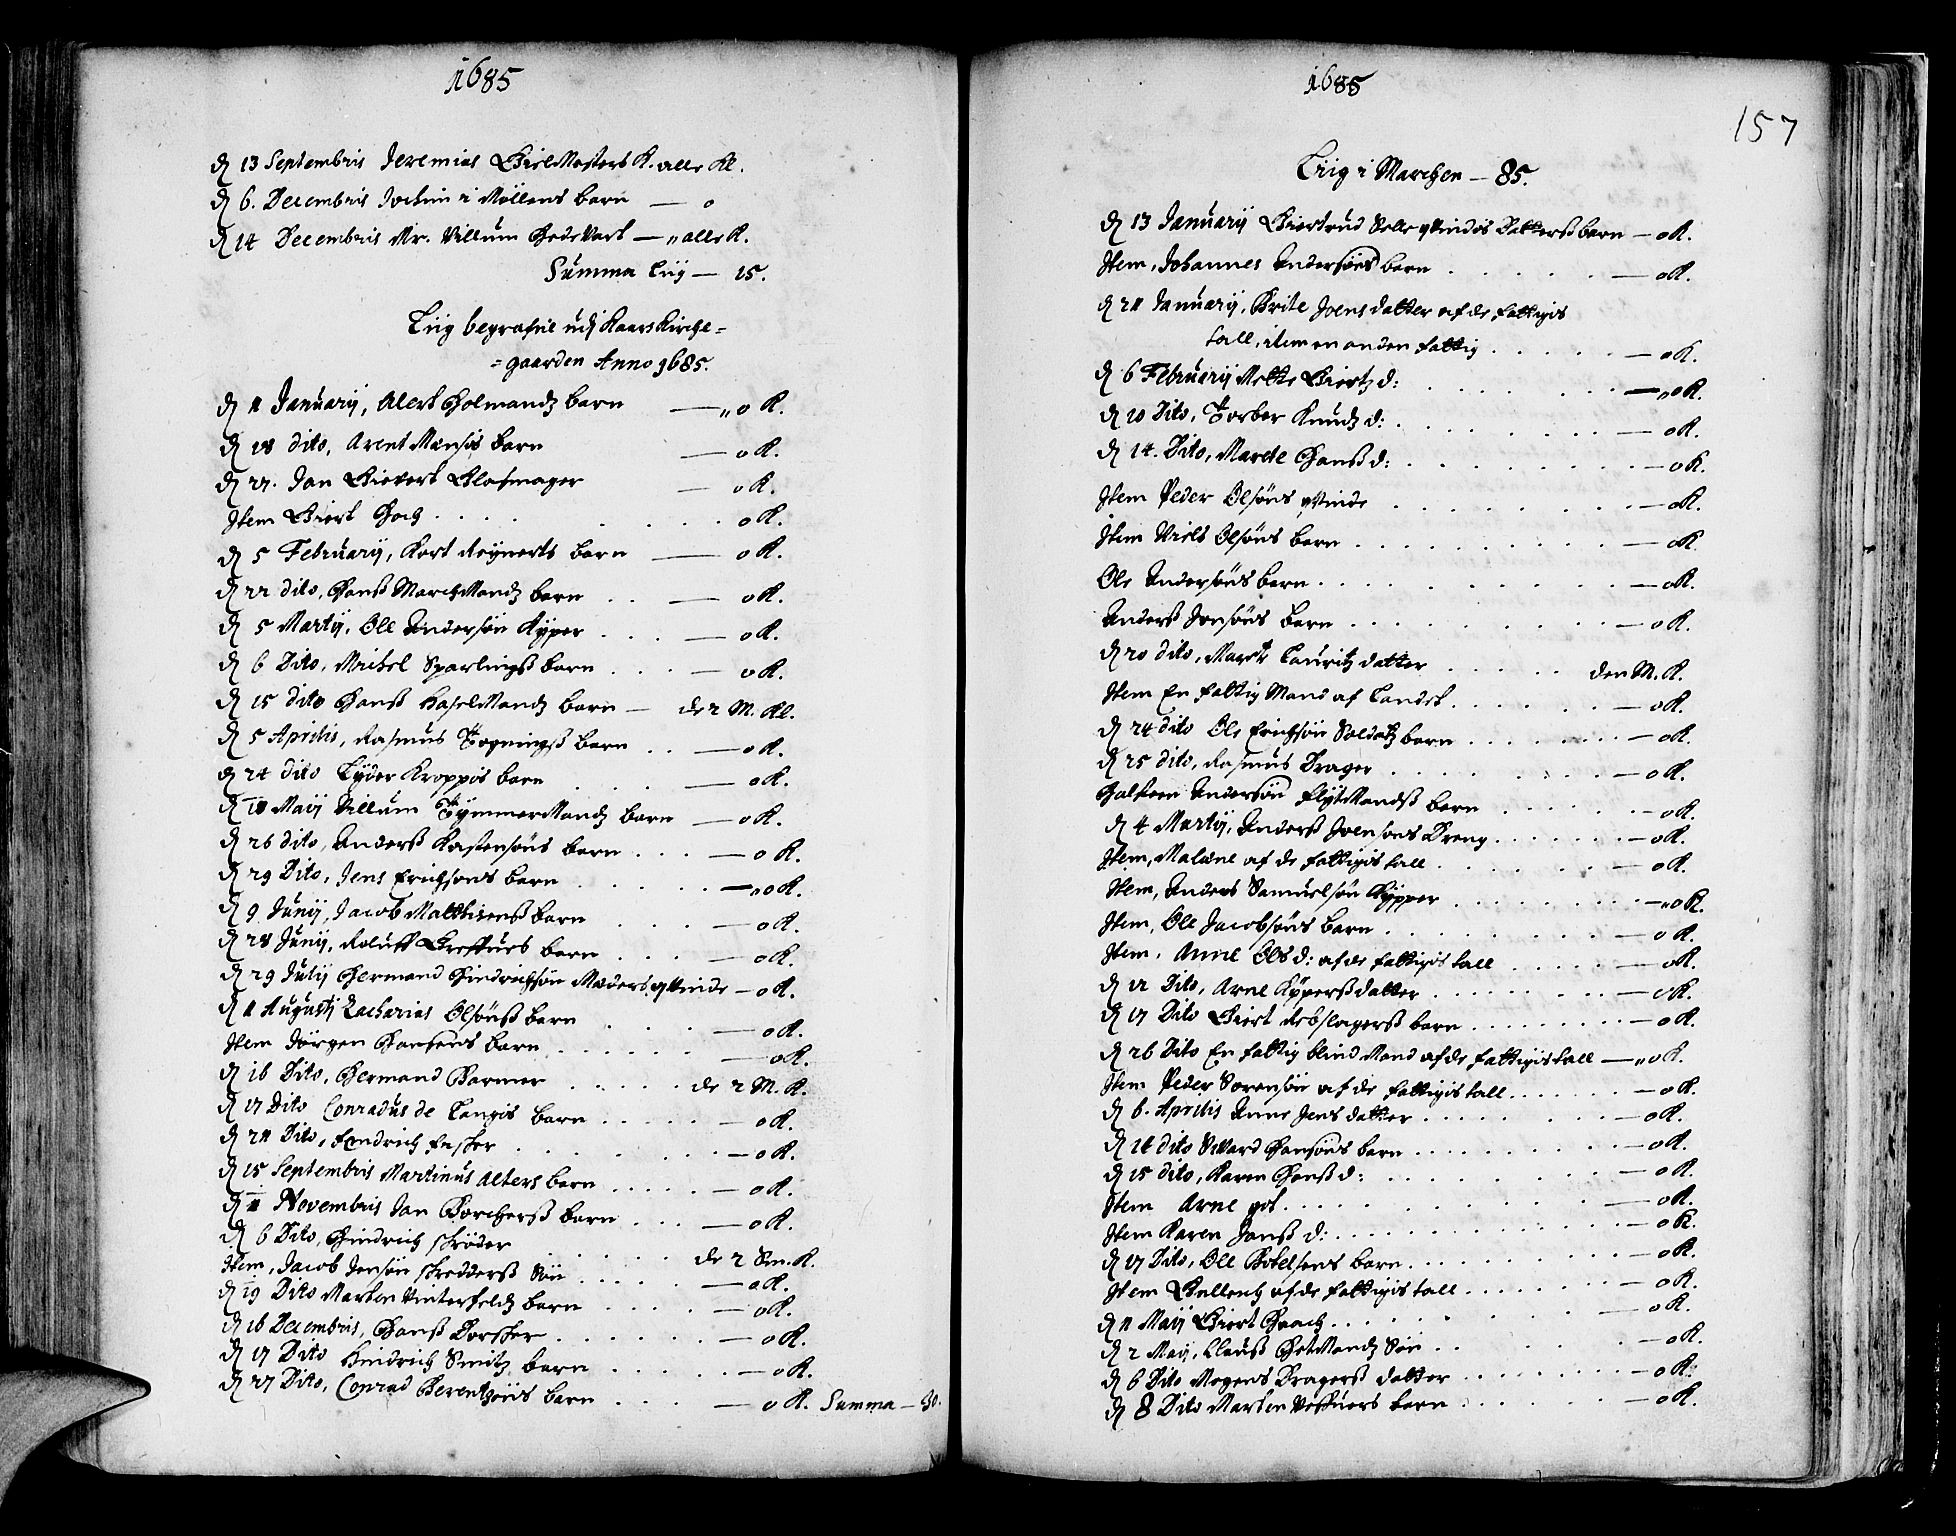 1685
d 13 Septembris Jeremias GielMesters K. alle Kl.
d 6. Decembris Jochim i Möllens barn — o
d 14 Decembris Mr. Villum Hedevart — „ alle K.
Summa Liig — 15.
Liig begrafne udj Kaars Kirche=
=gaarden Anno 1685.
d 11 January, Alert Holmandz barn — „o K.
d 18 dito, Arent Mansis barn — o K.
d 22. Jan Gievert Glasmager — o K.
Item Giert Hoch . . . . o K.
d 5 February, Kort Reynerts barn — o K.
d 22 dito, Hanß MarchMandz barn . . — o K.
d 5 Martij, Ole Andersøn Kyper . . . — o K.
d 6 Dito, Michel Sparlingß barn . . . — o K.
d 15 dito Hanß HaselMandz barn — de 2 M. Kl.
d 5 Aprilis, Rasmus Togningß barn . . — o K.
d 24 dito Lyder Kroppis barn . . . — o K.
d 18 Maij Villum TymmerMandz barn — o K.
d 26 dito, Anderß Kastensøns barn . . . — o K.
d 29 Dito, Jens Erichsøns barn . . . . . — o o K.
d 9 Junij, Jacob Matthisenß barn . . . . — o K.
d 28 Junij, Roluff Greffues barn . . . . — o K.
d 29 Julij Hermand Hindrichsøn Maders qvinde — o K.
d 11 Augustj Zacharias Olsønß barn . . . . — o K.
Item Jørgen Hansens barn . . . . . . — o K.
d 16 Dito, Hermand Barmer . . . . . de 2 M. K.
d 17 Dito Conradus de Langis barn . . . . . — o K.
d 21 Dito, Hendrich Fischer . . . . . . — o K.
d 15 Septembris Martinus Alters barn . . . . . — o K.
d 11 Novembris Jan Borcherß barn . . . — o K.
d 6 Dito, Hindrich Skrøder . . . . . . de 2 Sm. K.
Item, Jacob Jensøn Skredderß Søn . . . . . — o K.
d 19 Dito Marten Vinterfeldz barn . . . . — o K.
d 16 Decembris, Hanß Dorscher . . . . . . — o K.
d 17 Dito Hindrich Smitz barn . . . . . — o K.
d 27 Dito, Conrad Berentzøns barn . . . — o K. Summa — 30.
1685
157
Liig i Marchen — 85.
d 13 January Giertrud Selle qvindis Datterß barn — o K.
Item, Johannes Andersøns barn . . . . . — o K.
d 21 January, Brite Joens datter af de fattigis
tall, item en anden fattig . . . . . — o K.
d 6 February Mette Giertz d: . . . . . — „o K.
d 10 Dito, Torber Knudz d: . . . . . — o K.
d 14. Dito, Marete Hanß d: . . . . . — o K.
Item Peder Olsøns qvinde . . . . . — o K.
Item Niels Olsøns barn . . . . . — o K.
Ole Andersøns barn . . . . . — o K.
Anderß Jonsøns barn . . . . . — o K.
d 20 dito, Maret Lauritz datter . . . . . den M. K.
Item En fattig Mand af Landet . . . . . — o K.
d 24 dito Ole Erichsøn Soldatz barn . . . . . — o K.
d 25 dito, Rasmus Drager . . . . . — o K.
Halsteen Andersøn FlytMandß barn . . . . . — o K.
d 4 Martij, Anderß Joensøns Dreng . . . . . — o K.
Item, Malene af de fattigis tall . . . . . — o K.
Item, Anders Samuelsøn Kypper . . . . . — „o K.
Item, Ole Jacobsøns barn . . . . . — o K.
Item, Anne Ols d: af de fattigis tall . . . . . — o K.
d 12 Dito, Arne Kyperß datter . . . . . — o K.
d 17 Dito Giert Rebslagerß barn . . . . . — o K.
d 26 Dito En fattig blind Mand af de fattigis tall — „o K.
Item Peder Sørensøn af de fattigis tall . . . . . — o K.
d 6. Aprilis Anne Jens datter . . . . . — o K.
d 14 dito Sivard Hansøns barn . . . . . — o K.
d 15 dito, Karen Hanß d: . . . . . — o K.
Item Arne . . . . . — o K.
Item Karen Janß d: . . . . . — o K.
d 17 Dito, Ole Botelsøns barn . . . . . — o K.
Item af de fattigis tall . . . . . — o K.
d 11 Maij Giert Haach . . . . . — o K.
d 2 Maij, Clauß HotMandz Søn . . — o K.
d 6 Dito Mogens Dragerß datter . . . . . — o K.
d 8 Dito Marten Veffuers barn . . . . . — o K.